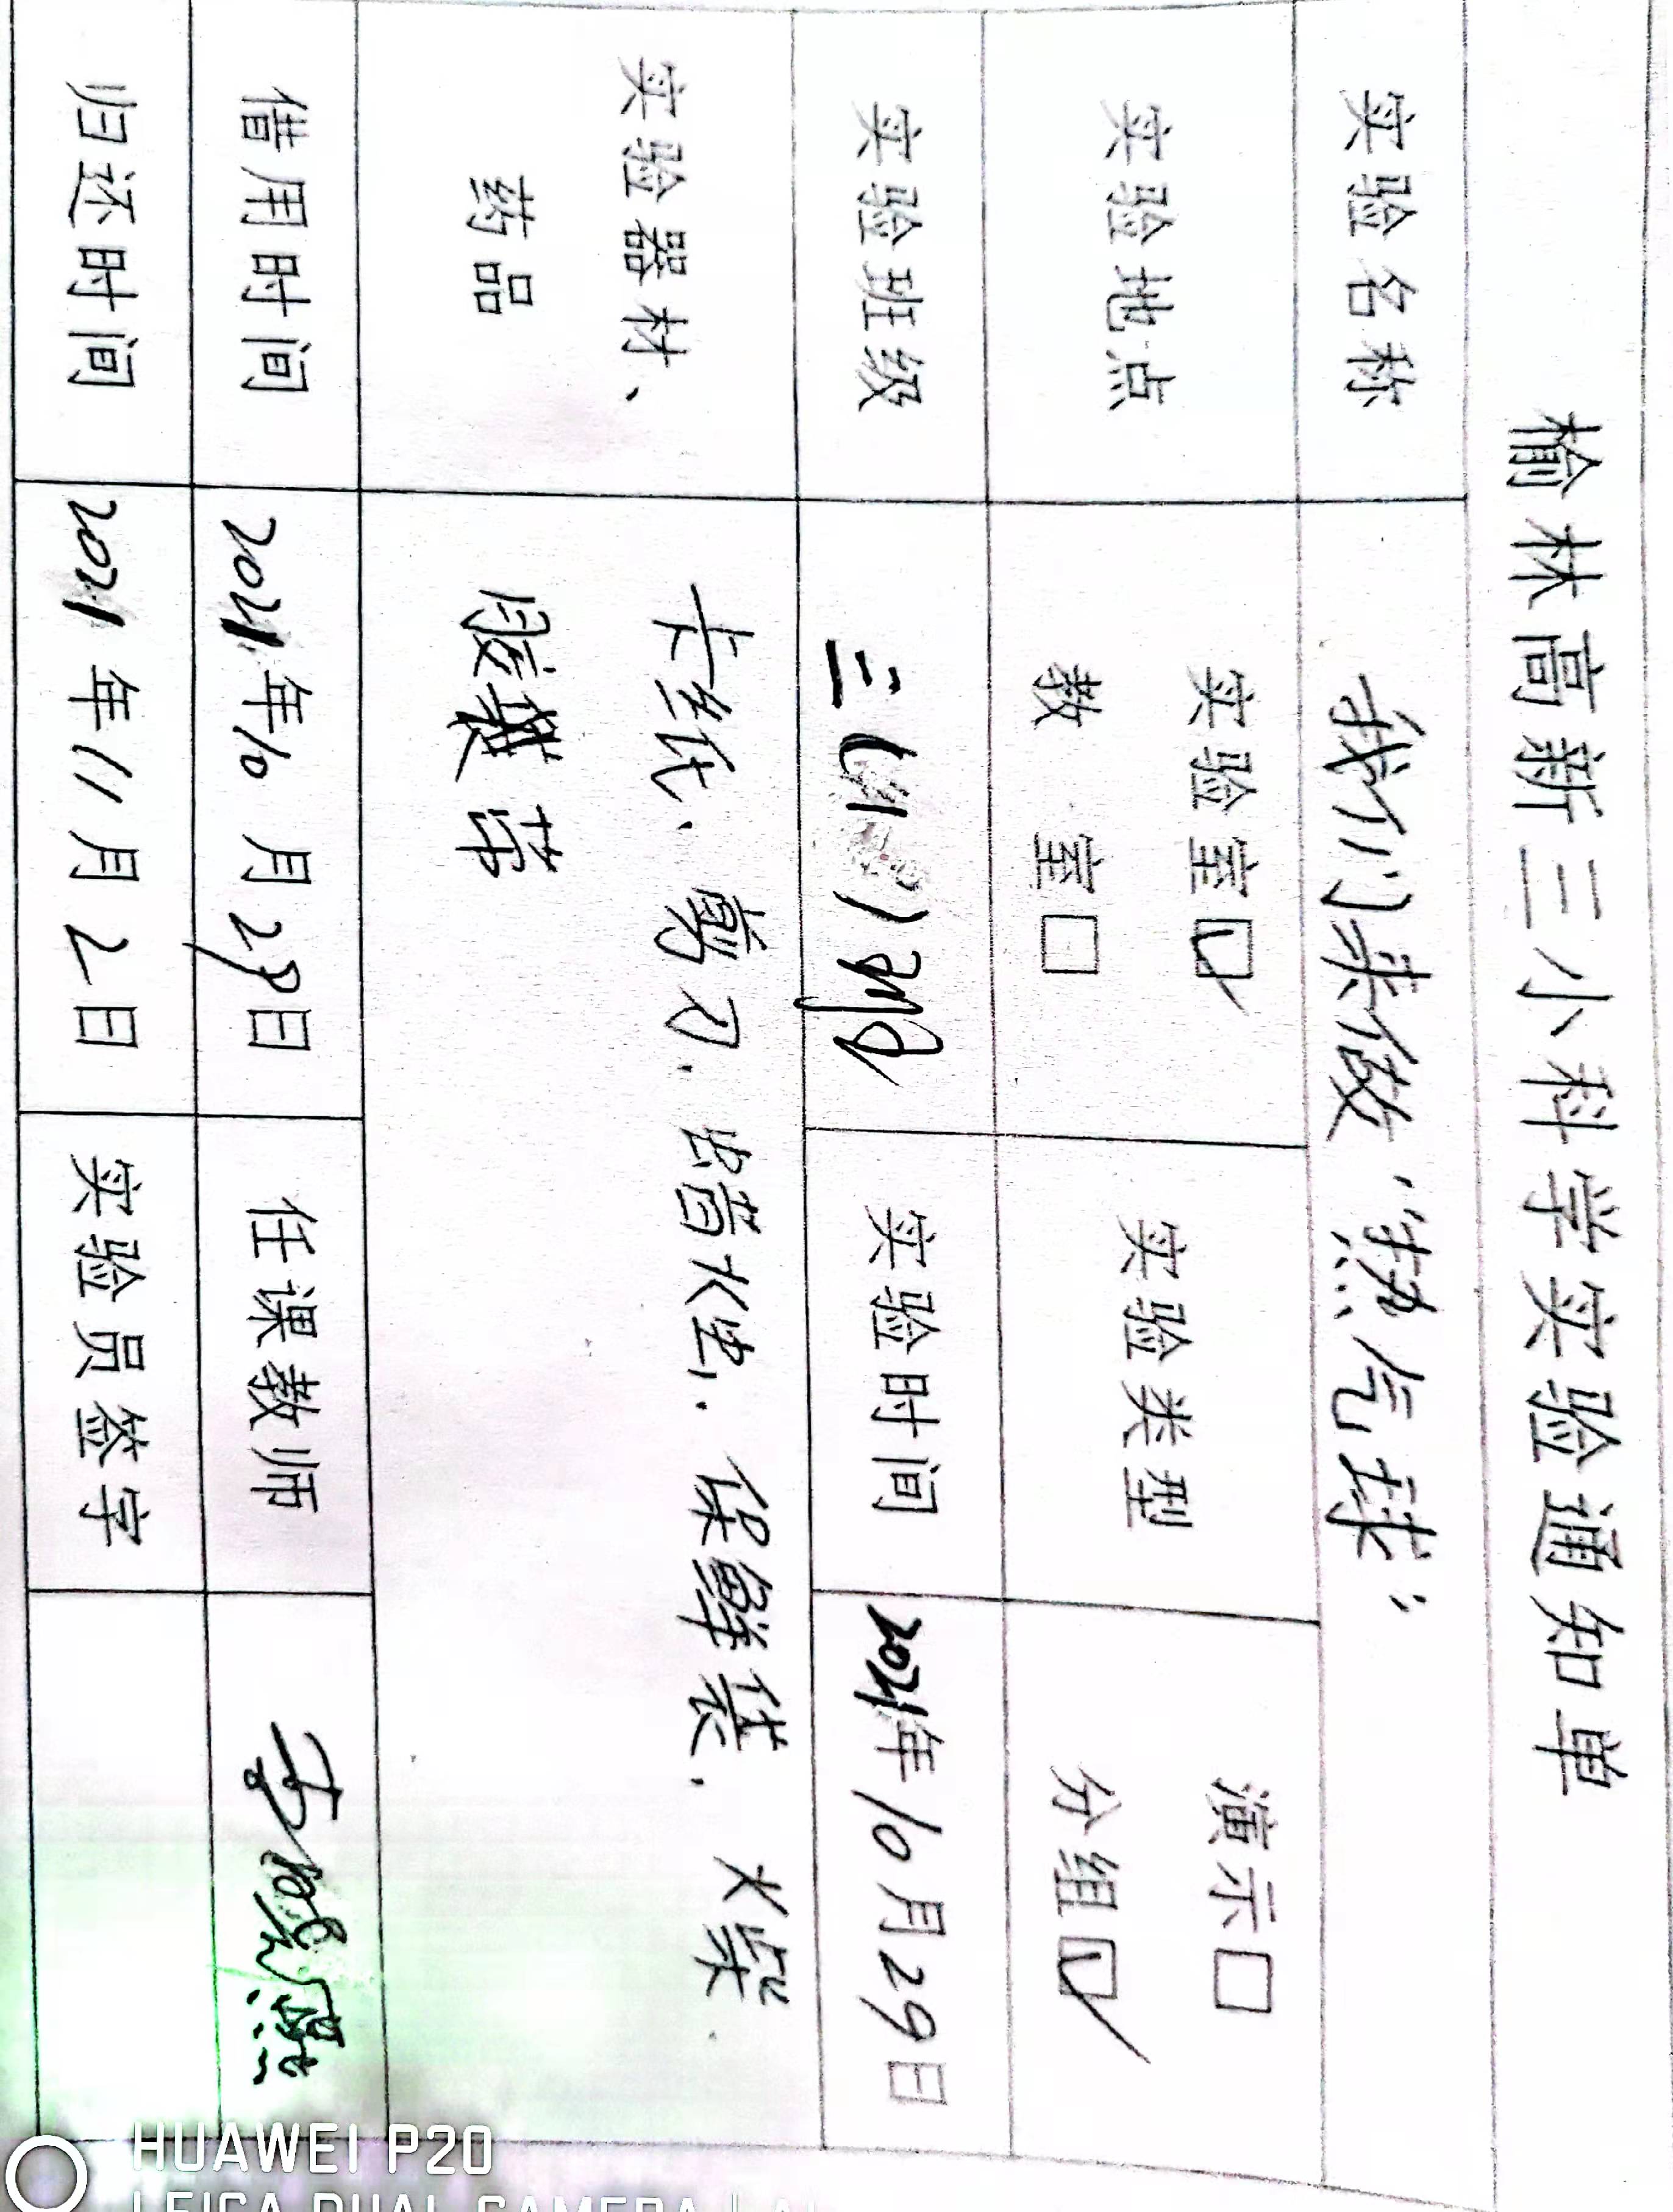 榆林高新三小科学实验通知单
实验名称 我们来做“热气球”
实验地点 实验室☑ 教 室□ 实验类型 演示□ 分组☑
实验班级 三 班 实验时间 2021年10月29日
实验器材、 卡纸、剪刀、蜡烛、保鲜袋、火柴、
药品 胶 带
借用时间 2021年10月29日 任课教师
归还时间 2021年11月2日 实验员签字
HUAWEI P20
LEICA DUAL CAMERA | AI